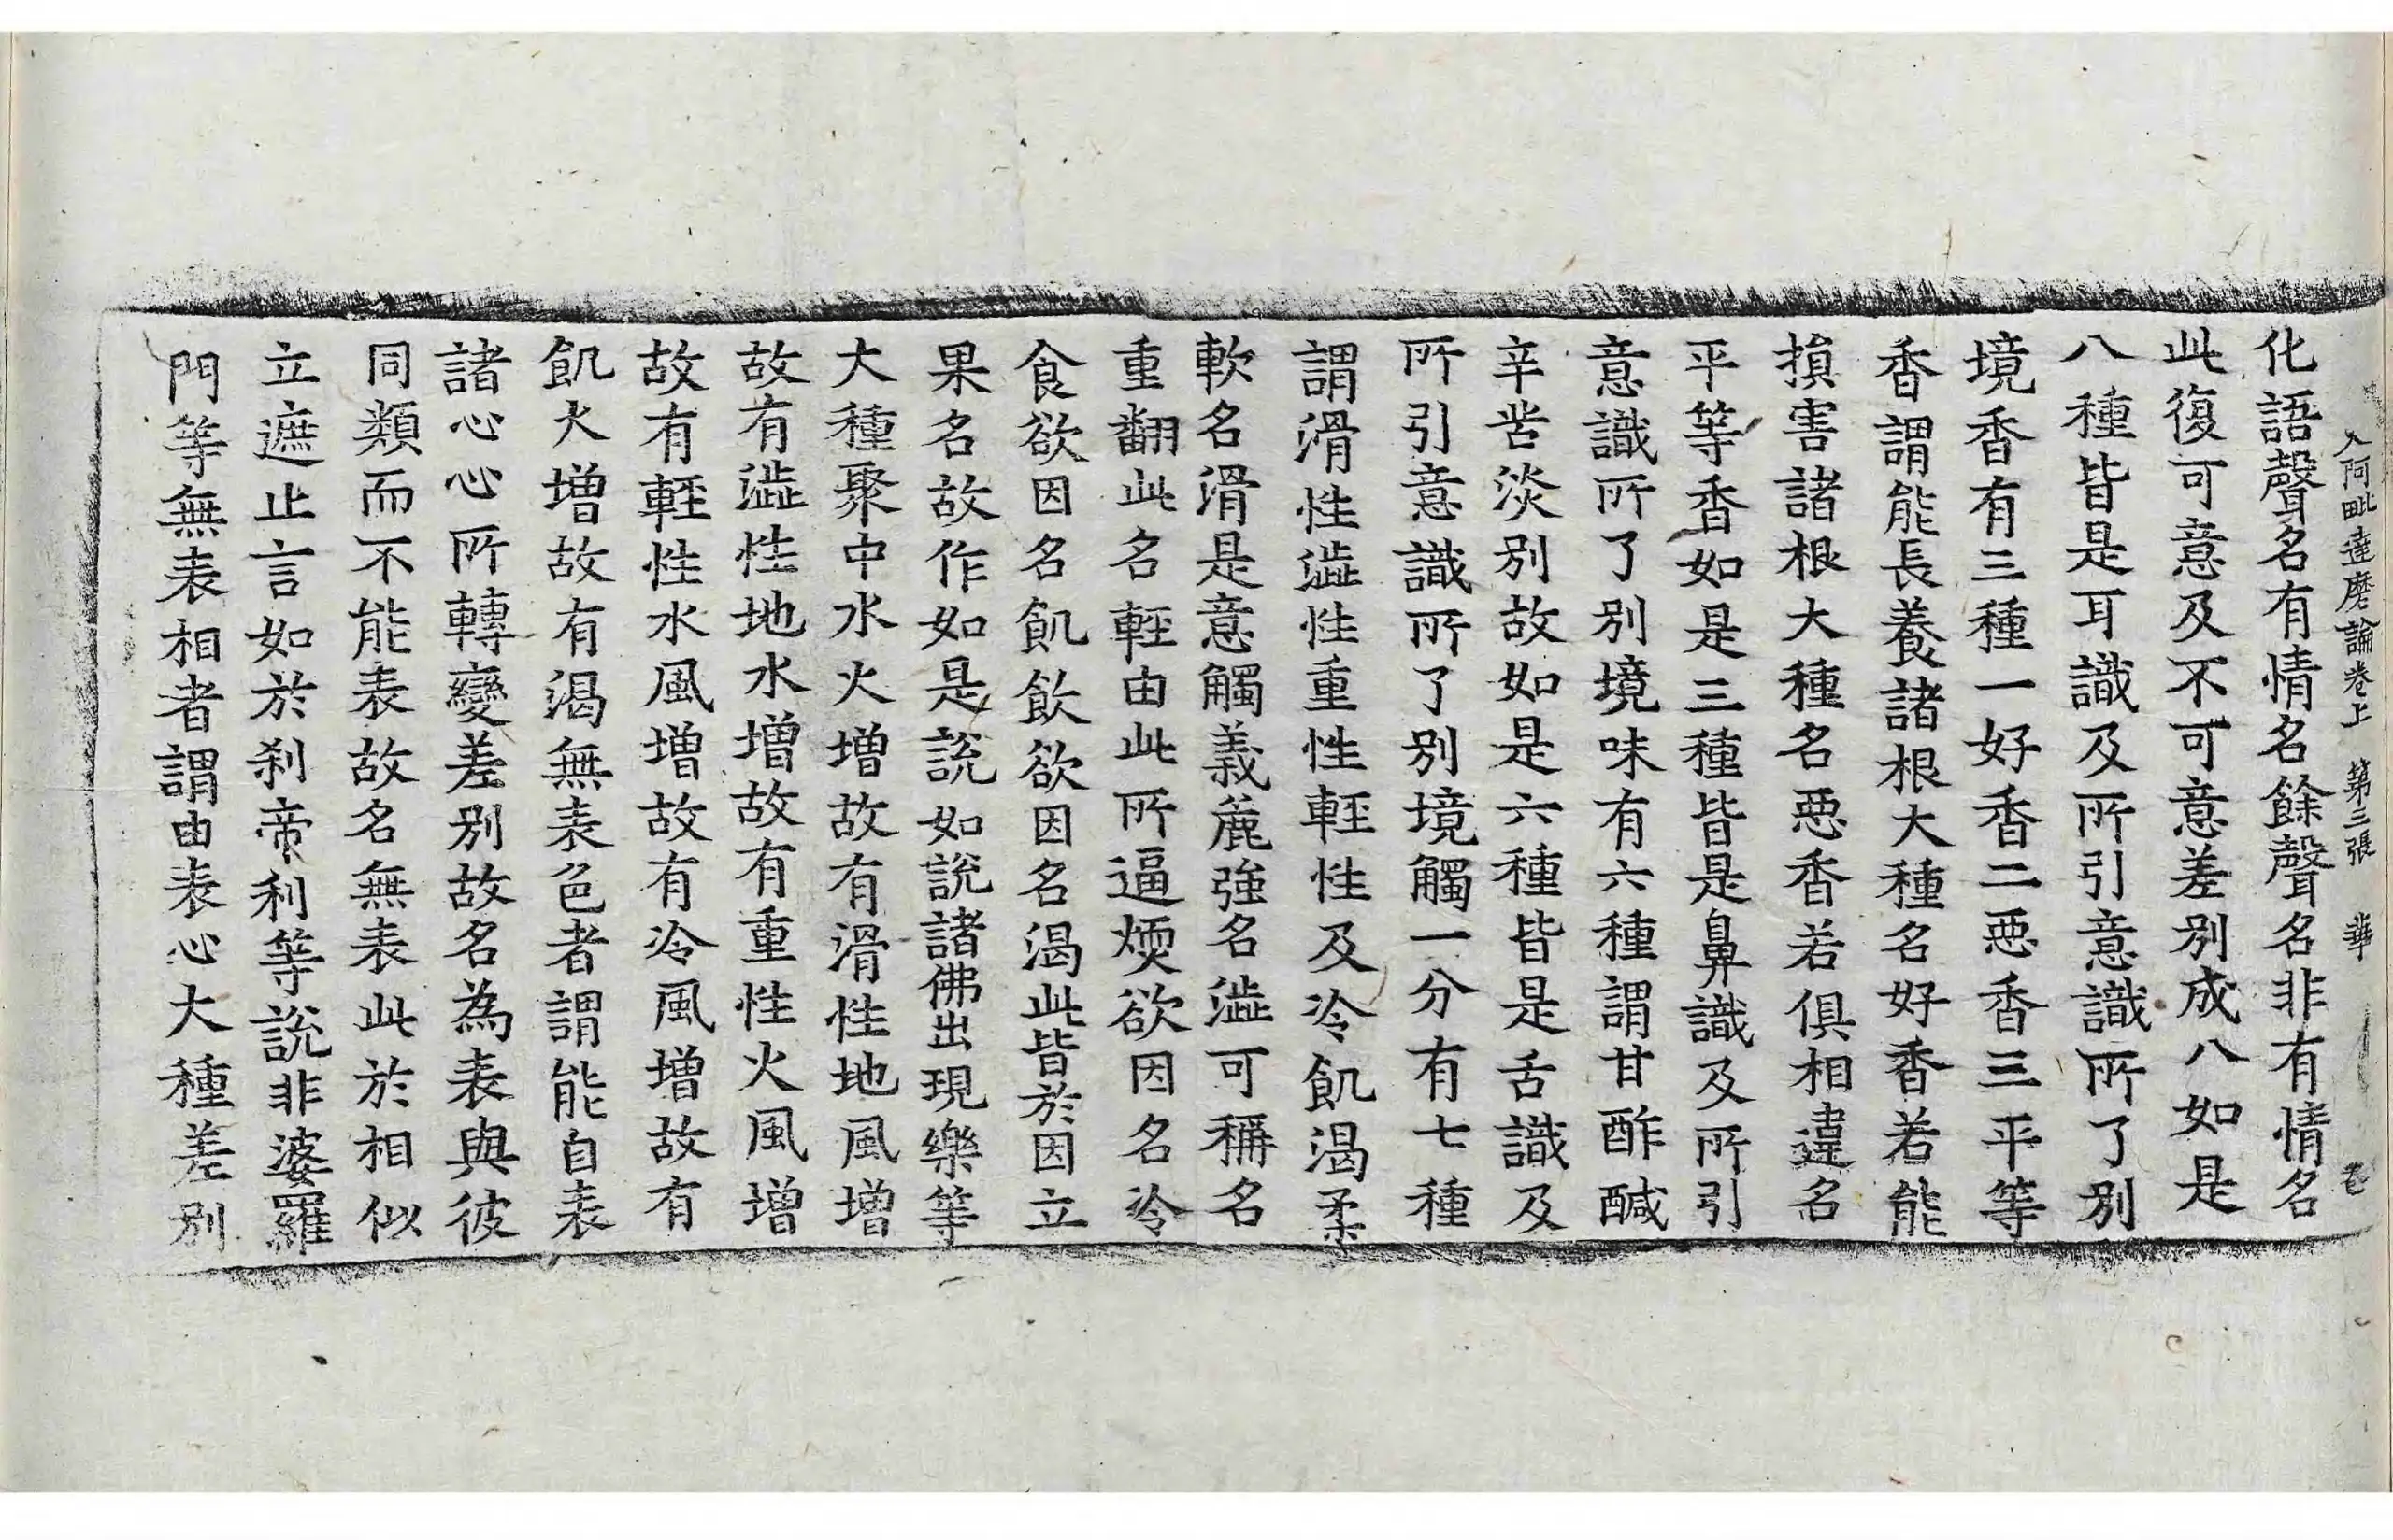 入阿毗達磨論卷上 第三張 華
化語聲名有情名餘聲名非有情名
此復可意及不可意差別成八如是
八種皆是耳識及所引意識所了別
境香有三種一好香二惡香三平等
香謂能長養諸根大種名好香若能
損害諸根大種名惡香若俱相違名
平等香如是三種皆是鼻識及所引
意識所了別境味有六種謂甘酢鹹
辛苦淡別故如是六種皆是舌識及
所引意識所了別境觸一分有七種
謂滑性澁性重性輕性及冷飢渴柔
軟名滑是意觸義麁強名澁可稱名
重翻此名輕由此所逼煗欲因名冷
食欲因名飢飲欲因名渴此皆於因立
果名故作如是說如說諸佛出現樂等
大種聚中水火增故有滑性地風增
故有澁性地水增故有重性火風增
故有輕性水風增故有冷風增故有
飢火增故有渴無表色者謂能自表
諸心心所轉變差別故名為表與彼
同類而不能表故名無表此於相似
立遮止言如於剎帝利等說非婆羅
門等無表相者謂由表心大種差別